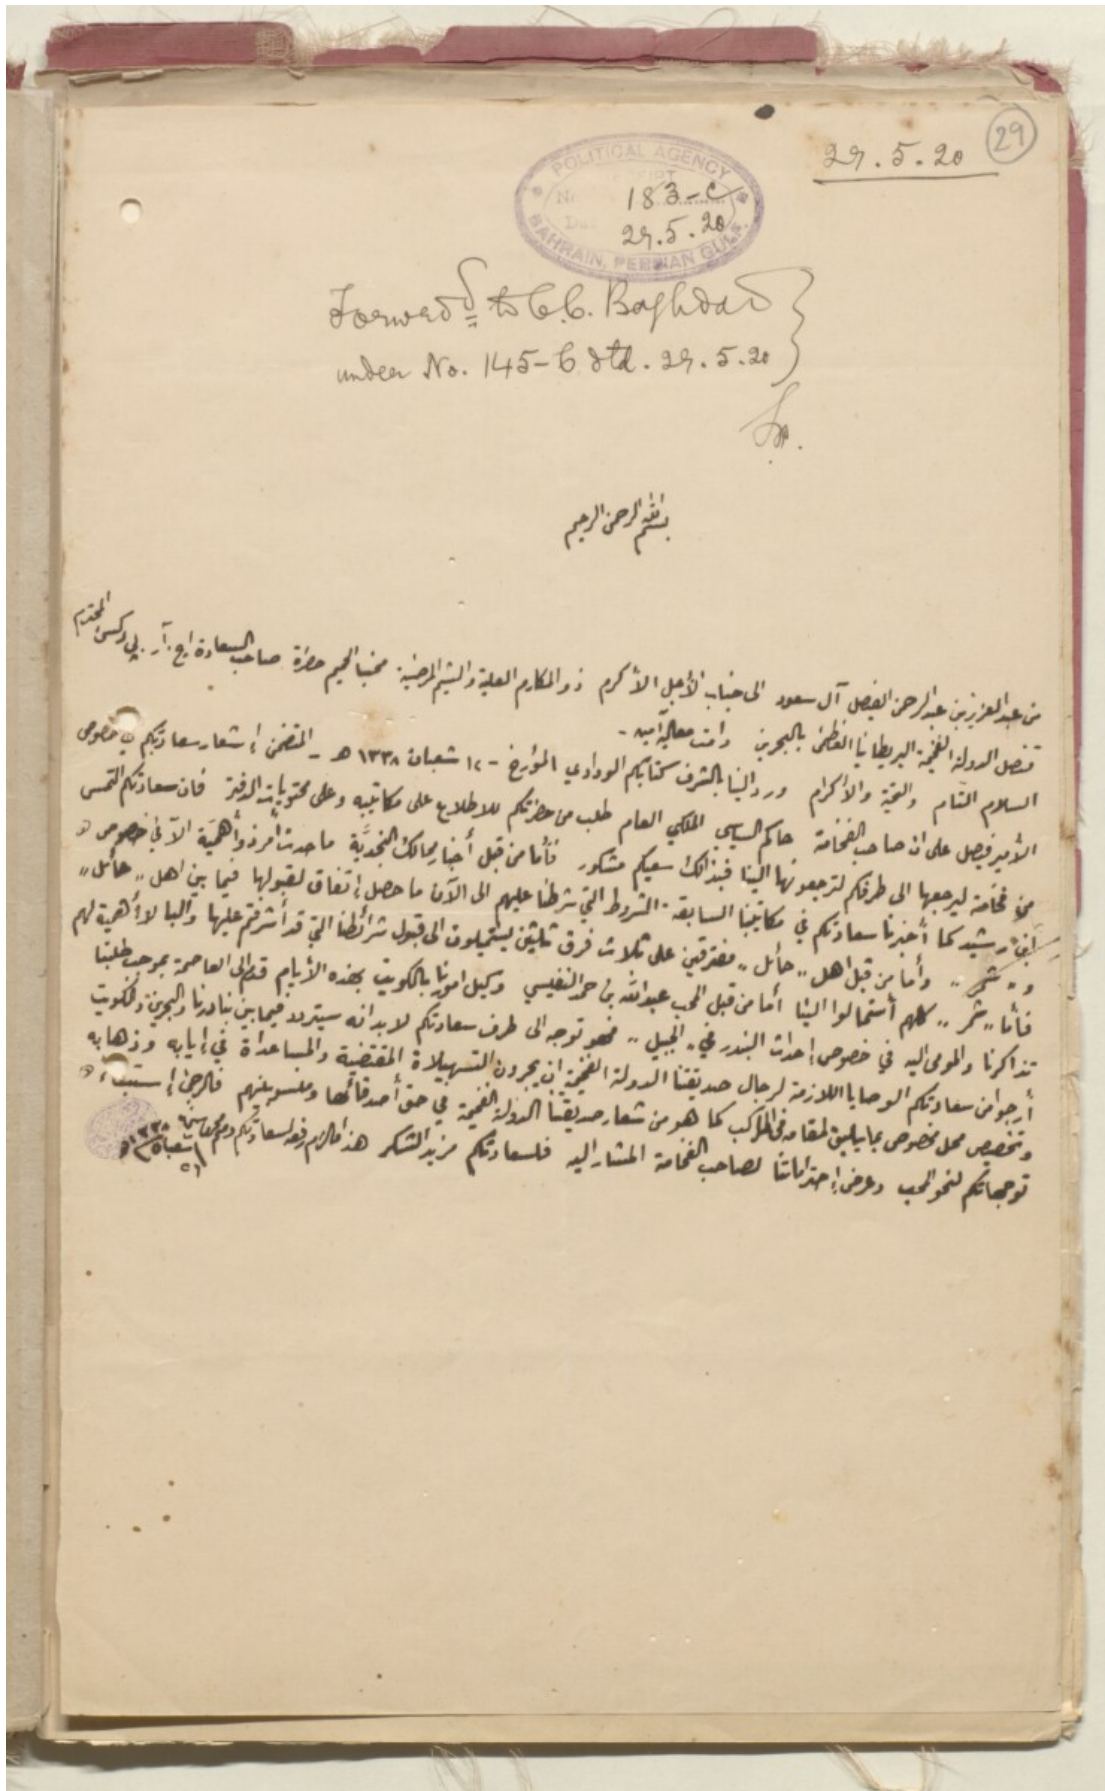 29
29.5.20
POLITICAL AGENCY
No. 183-C
29.5.20
BAHRAIN, PERSIAN GULF.
Forward^d to C.C. Baghdad
under No. 145-C dtd. 29.5.20
بسم الله الرحمن الرحيم
من عبد العزيز بن عبد الرحمن الفيصل آل سعود الى جناب الأجل الأكرم ذو المكارم العلية والشيم المرضية محبنا الحميم حضرة صاحب السعادة اج. آر. پي دكسن المحترم
قنصل الدولة الفخيمة البريطانيا العظمى بالبحرين دامت معاليه آمين -
السلام التام والتحية والاكرام ورد الينا بالشرف كتابكم الودادي المؤرخ - ١٢ شعبان ١٣٣٨ هـ - المتضمن إشعار سعادتكم في خصوص
الأمير فيصل على ان صاحب الفخامة حاكم السياسي الملكي العام طلب من حضرتكم للاطلاع على مكاتيبه وعلى محتويات الدفتر فان سعادتكم التمس
من فخامته ليرجعها الى طرفكم لترجعونها الينا فبذالك سعيكم مشكور فأما من قبل أخبار ممالك النجدية ما حدث أمر ذو أهمية الآ في خصوص
ابن رشيد كما أخبرنا سعادتكم في مكاتيبنا السابقة الشروط التي شرطنا عليهم الى الآن ما حصل إتفاق لقبولها فيما بين اهل ,, حائل ,,
و,, شمر ,, وأما من قبل اهل ,, حائل ,, مفترقين على ثلاث فرق ثلثين يستميلون الى قبول شرائطنا التي قد أشرفتم عليها والبا لا أهمية لهم
فأما ,, شمر ,, كلهم أستمالوا الينا أما من قبل المحب عبد الله بن حمد النفيسي وكيل امورنا بالكويت بهذه الأيام قدم الى العاصمة بموجب طلبنا
تذاكرنا والمومى اليه في خصوص إحداث البندر في ,, الجبيل ,, فهو توجه الى طرف سعادتكم لابد انه سيتردد فيما بين بنادرنا والبحرين والكويت
أرجو من سعادتكم الوصايا اللازمة لرجال صديقتنا الدولة الفخيمة ان يجرون التسهيلاة المقتضية والمساعداة في إيابه وذهابه
وتخصيص محل مخصوص بما يليق لمقامه في المراكب كما هو من شعار صديقتنا الدولة الفخيمة في حق أصدقائها ومنسوبينهم فالرجى إستبقاء
توجهاتكم لنحو المحب وعرض إحتراماتنا لصاحب الفخامة المشار اليه فلسعادتكم مزيد الشكر هذا ما لزم رفعه لسعادتكم ودمتم
شعبان ١٣٣٨